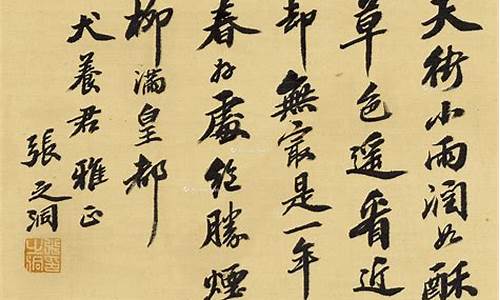 天街小雨潤如酥
草色遙看近
却無最是一年
春好處絕勝煙
柳滿皇都
犬養君雅正
張之洞